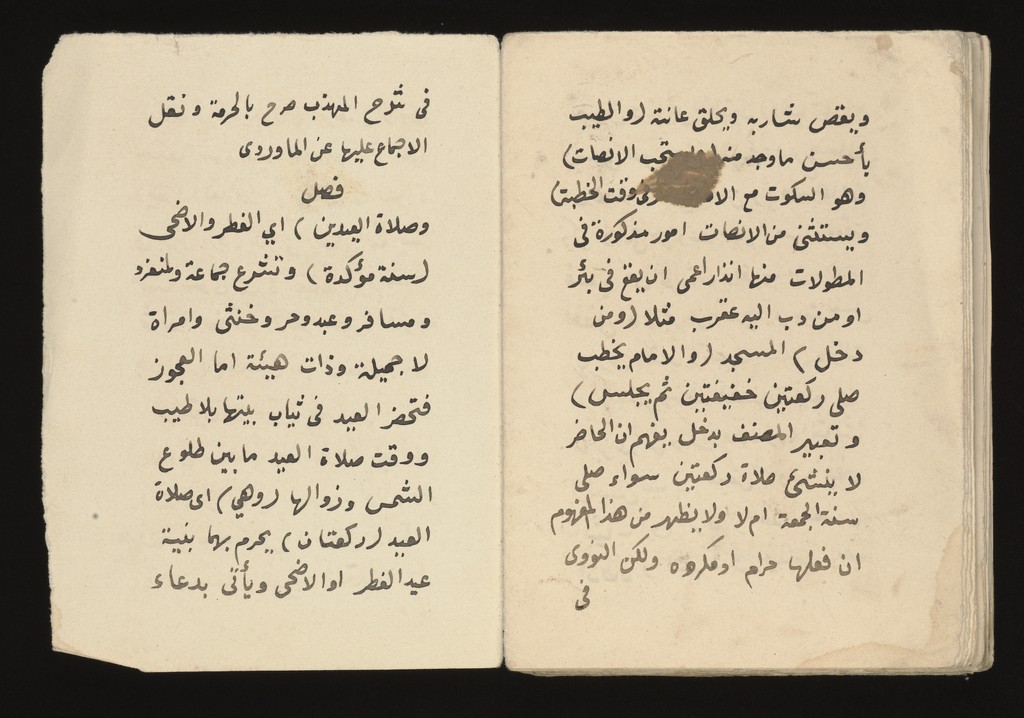 ويقص شاربه ويحلق عانته (والطيب
بأحسن ما وجد منه ويستحب الانصات)
وهو السكوت مع وقت الخطبة)
ويستثنى من الانصات امور مذكورة فى
المطولات منها انذار اعمى ان يقع فى بئر
او من دب اليه عقرب مثلا (ومن
دخل) المسجد (والامام يخطب
صلى ركعتين خفيفتين ثم يجلس)
وتعبير المصنف بدخل يفهم ان الحاضر
لا ينشئ صلاة ركعتين سواء صلى
سنة الجمعة ام لا ولا يظهر من هذا المفهوم
ان فعلها حرام او مكروه ولكن النووى
فى
فى شرح المهذب صرح بالحرمة ونقل
الاجماع عليها عن الماوردى
فصل
وصلاة العيدين) اي الفطر والاضحى
(سنة مؤكدة) وتشرع جماعة ولمنفرد
ومسافر وعبد وحر وخنثى وامراة
لا جميلة وذات هيئة اما العجوز
فتحضر العيد فى ثياب بيتها بلا طيب
ووقت صلاة العيد ما بين طلوع
الشمس وزوالها (وهي) اى صلاة
العيد (ركعتان) يحرم بهما بنية
عيد الفطر او الاضحى ويأتى بدعاء